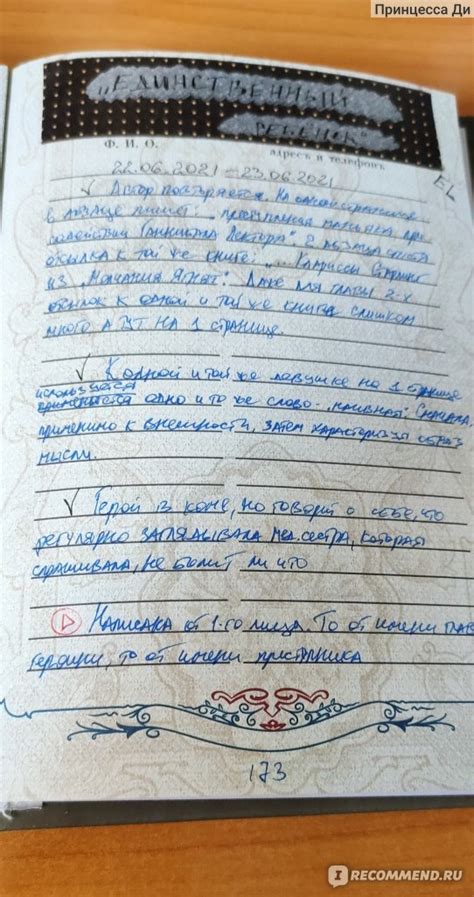 Принцесса Ди
„ЕДИНСТВЕННЫЙ
РЕБЕНОК"
Ф. И. О. адресъ и телефонъ
EL
22.06.2021 – 23.06.2021
✓ Автор повторяется. На одной странице
в абзаце пишет: „ при
содействии Ганнибала Лектора". 2 абзаца спустя
отсылка к той же книге: „... Клариссы Старлинг
из „Молчания Ягнят". Даже для главы 2-х
отсылок к одной и той же книге слишком
много А ТУТ НА 1 странице.
✓ К одной и той же девушке на 1 странице
используется
применяется одно и то же слово - „наивная". Сначала,
применимо к внешности, затем характеризуя образ
мысли.
✓ Герой в коме, но говорит о себе, что
регулярно заглядывала мед. сестра, которая
спрашивала, не болит ли что
Написана от 1-го лица. То от имени глав
героини, то от имени преступника
173
IRECOMMEND.RU